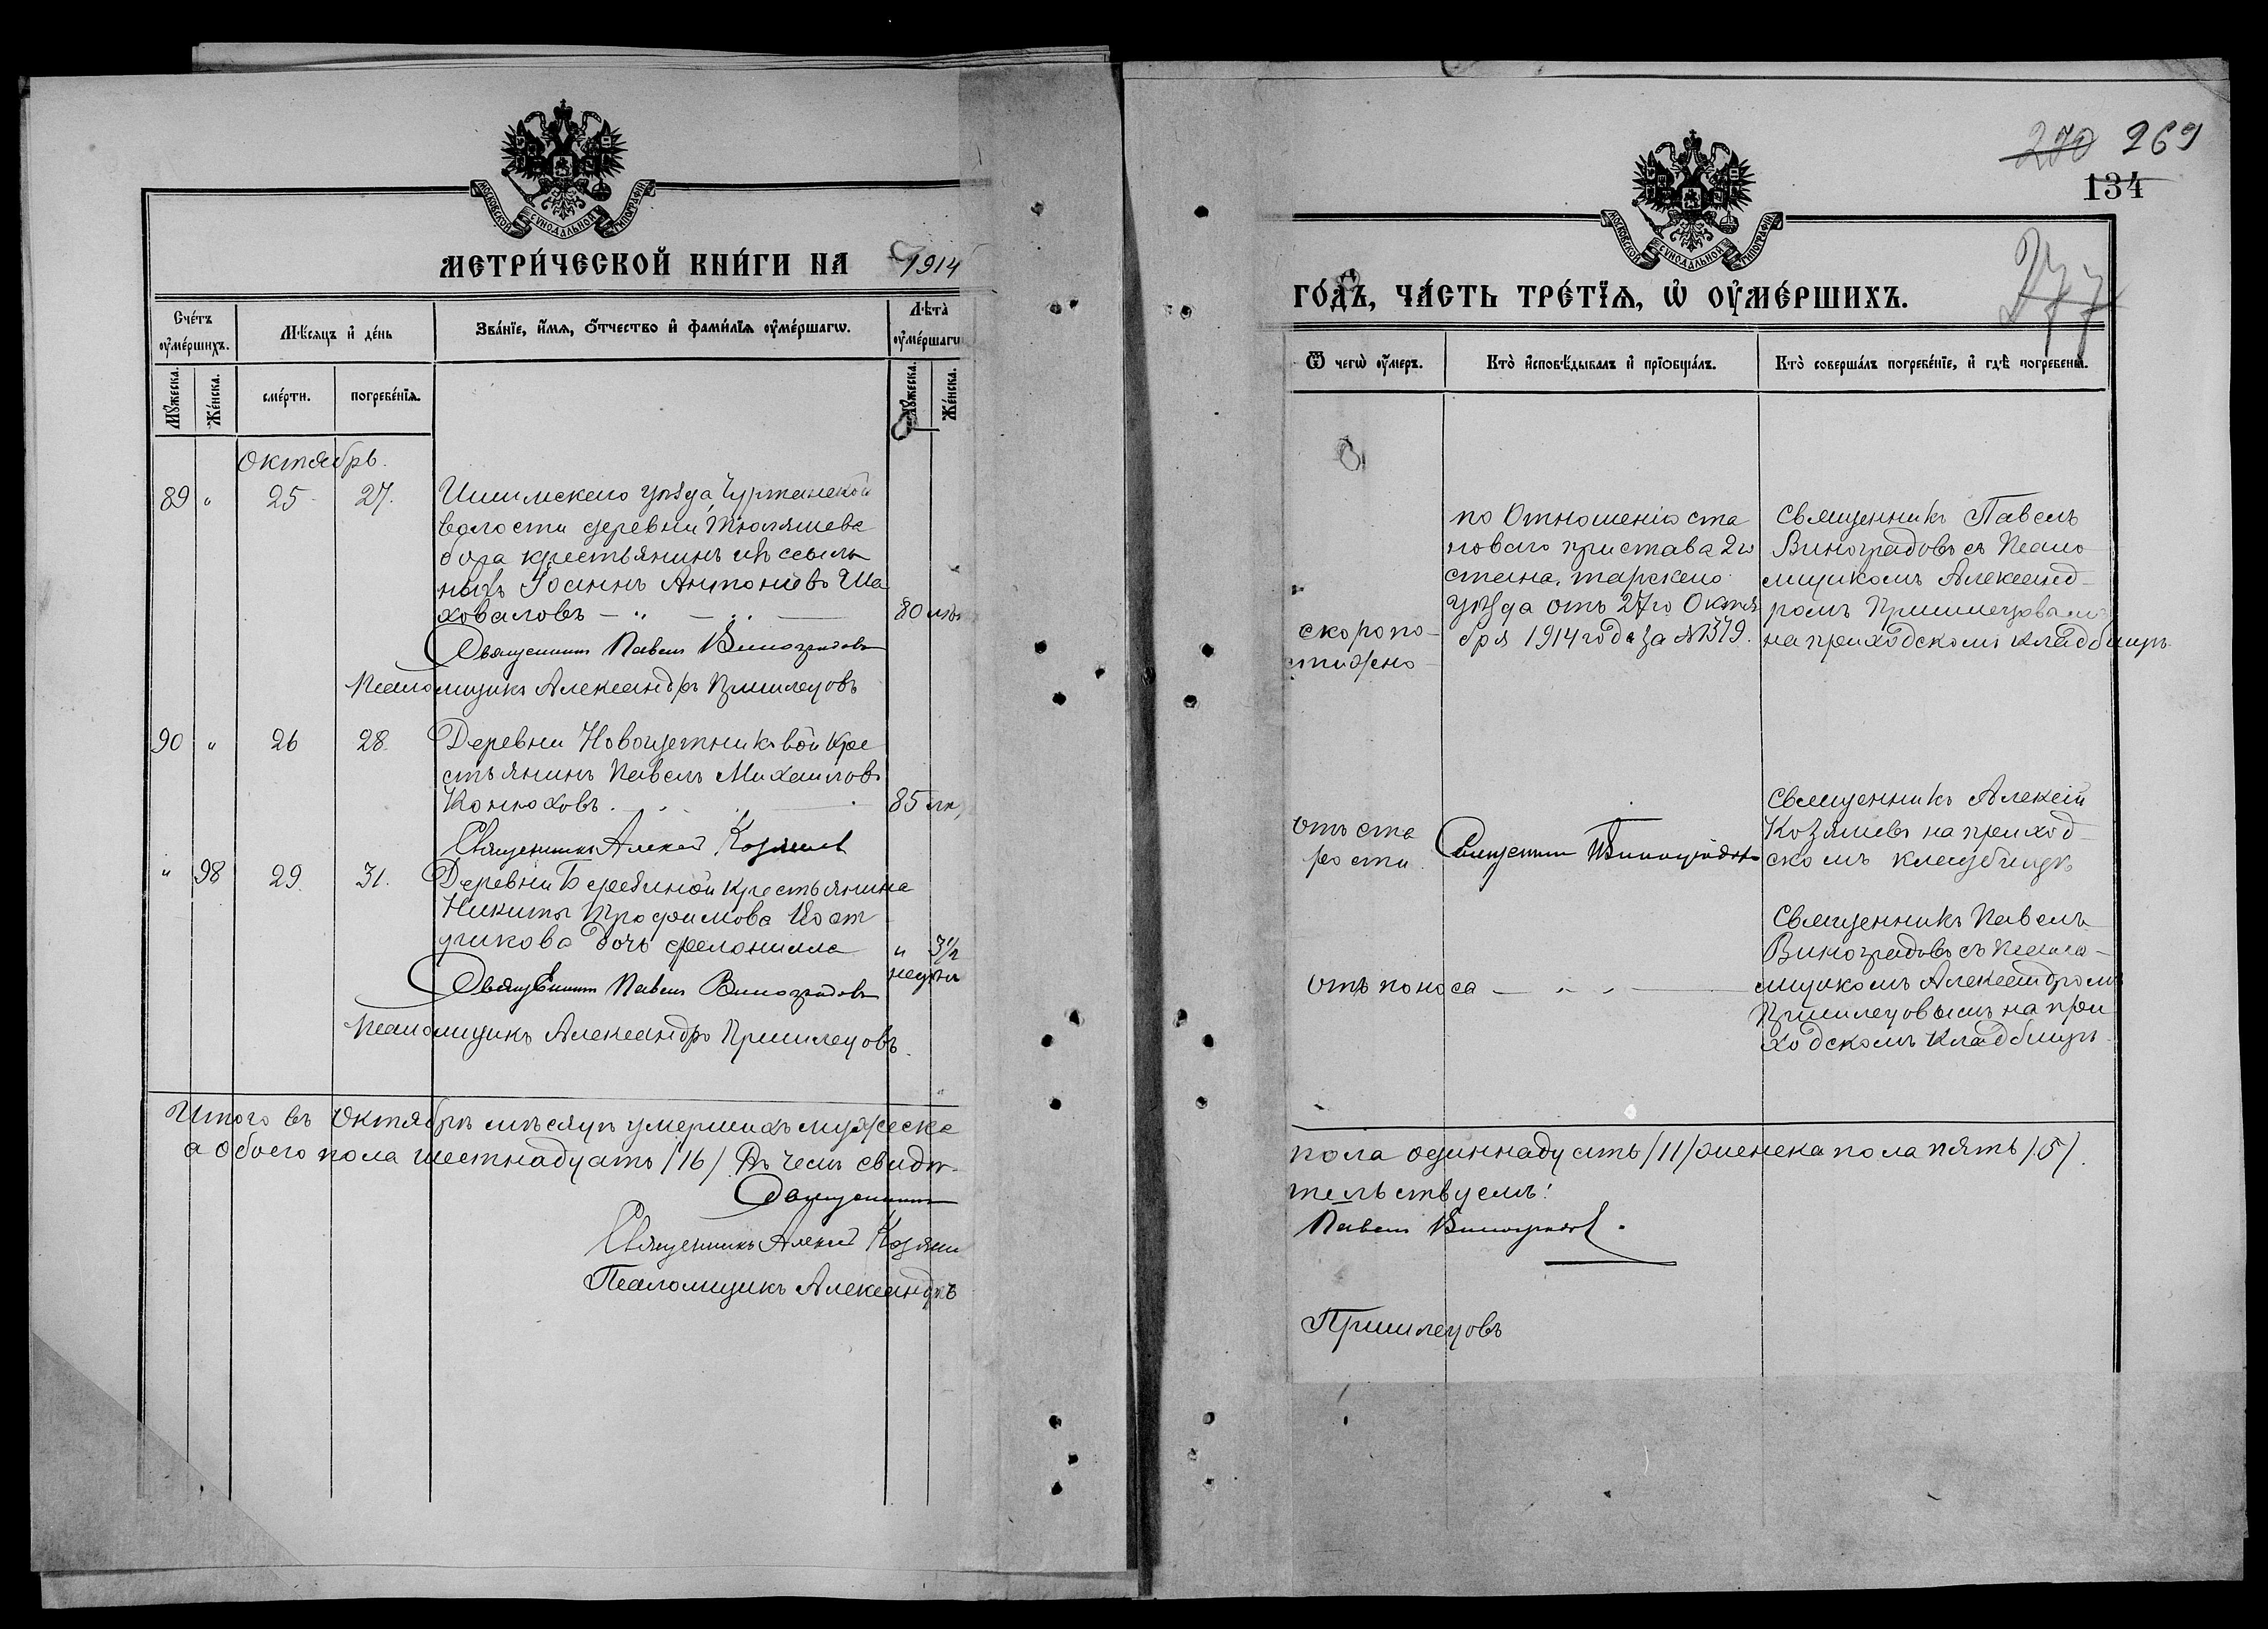 МОСКОВСКОЙ СѴНОДАЛЬНОЙ ТИПОГРАФІИ
МЕТРИ́ЧЕСКОЙ КНИ́ГИ НА 1914
Сче́тъ ᲂу҆ме́ршихъ.
Мѣ́сяцъ и҆ де́нь
Зва́нїе, и҆́мя, ѻ҆́тчество и҆ фами́лїя ᲂу҆ме́ршагѡ.
Лѣта̀ ᲂу҆ме́ршагѡ
Мꙋ́жеска.
Же́нска.
сме́рти.
погребе́нїя.
Мꙋ́жеска.
Же́нска.
Октябрь.
89 " 25 27.
Ишимскаго уѣзда Чуртанской
волости деревни Тюляшева
бора крестьянинъ изъ ссыль
ныхъ Іоаннъ Антоніевъ Ша
ховаловъ — " — " —
80 лѣтъ
Священникъ Павелъ Виноградовъ
Псаломщикъ Александръ Пришлецовъ
90 " 26 28.
Деревни Новощетниковой кре
стьянинъ Павелъ Михаиловъ
Конюховъ.
85 лѣ
Священникъ Алексій Козяшев
" 98 29. 31.
Деревни Берединой крестьянина
Никиты Трофимова
дочь Филонилла
" 3½
недѣли
Священникъ Павелъ Виноградовъ
Псаломщикъ Александръ Пришлецовъ.
Итого въ Октябрѣ мѣсяцѣ умершихъ мужеска
а обоего пола шестнадцать /16/ Въ чемъ свидѣ-
Священникъ
Священникъ Алексій Козяши
Псаломщикъ Александръ
270 269
134
277
МОСКОВСКОЙ СѴНОДАЛЬНОЙ ТИПОГРАФІИ
ГО́ДЪ, ЧА́СТЬ ТРЕ́ТЇѦ, Ѽ ОУ҆МЕ́РШИХЪ.
Ѿ чегѡ̀ ᲂу҆́меръ.
Кто̀ и҆сповѣ́дывалъ и҆ прїѡбща́лъ.
Кто̀ соверша́лъ погребе́нїе, и҆ гдѣ̀ погребены̀.
скоропо-
стижно
по Отношенію ста
новаго пристава 2го
стана, тарскаго
уѣзда отъ 27го Октя
бря 1914 года за №1379.
Священникъ Павелъ
Виноградовъ съ Псало
мщикомъ Александ-
ромъ Пришлецовымъ
на приходскомъ кладбищѣ.
отъ ста
рости.
Священникъ Виноградовъ
Священникъ Алексій
Козяшевъ на приход-
скомъ кладбищѣ
отъ поноса — " " —
Священникъ Павелъ
Виноградовъ съ Псало-
мщикомъ Александромъ
Пришлецовымъ на при
ходскомъ кладбищѣ.
пола одиннадцать /11/ женска пола пять /5/.
тельствуемъ:
Павелъ Виноградовъ.
Пришлецовъ